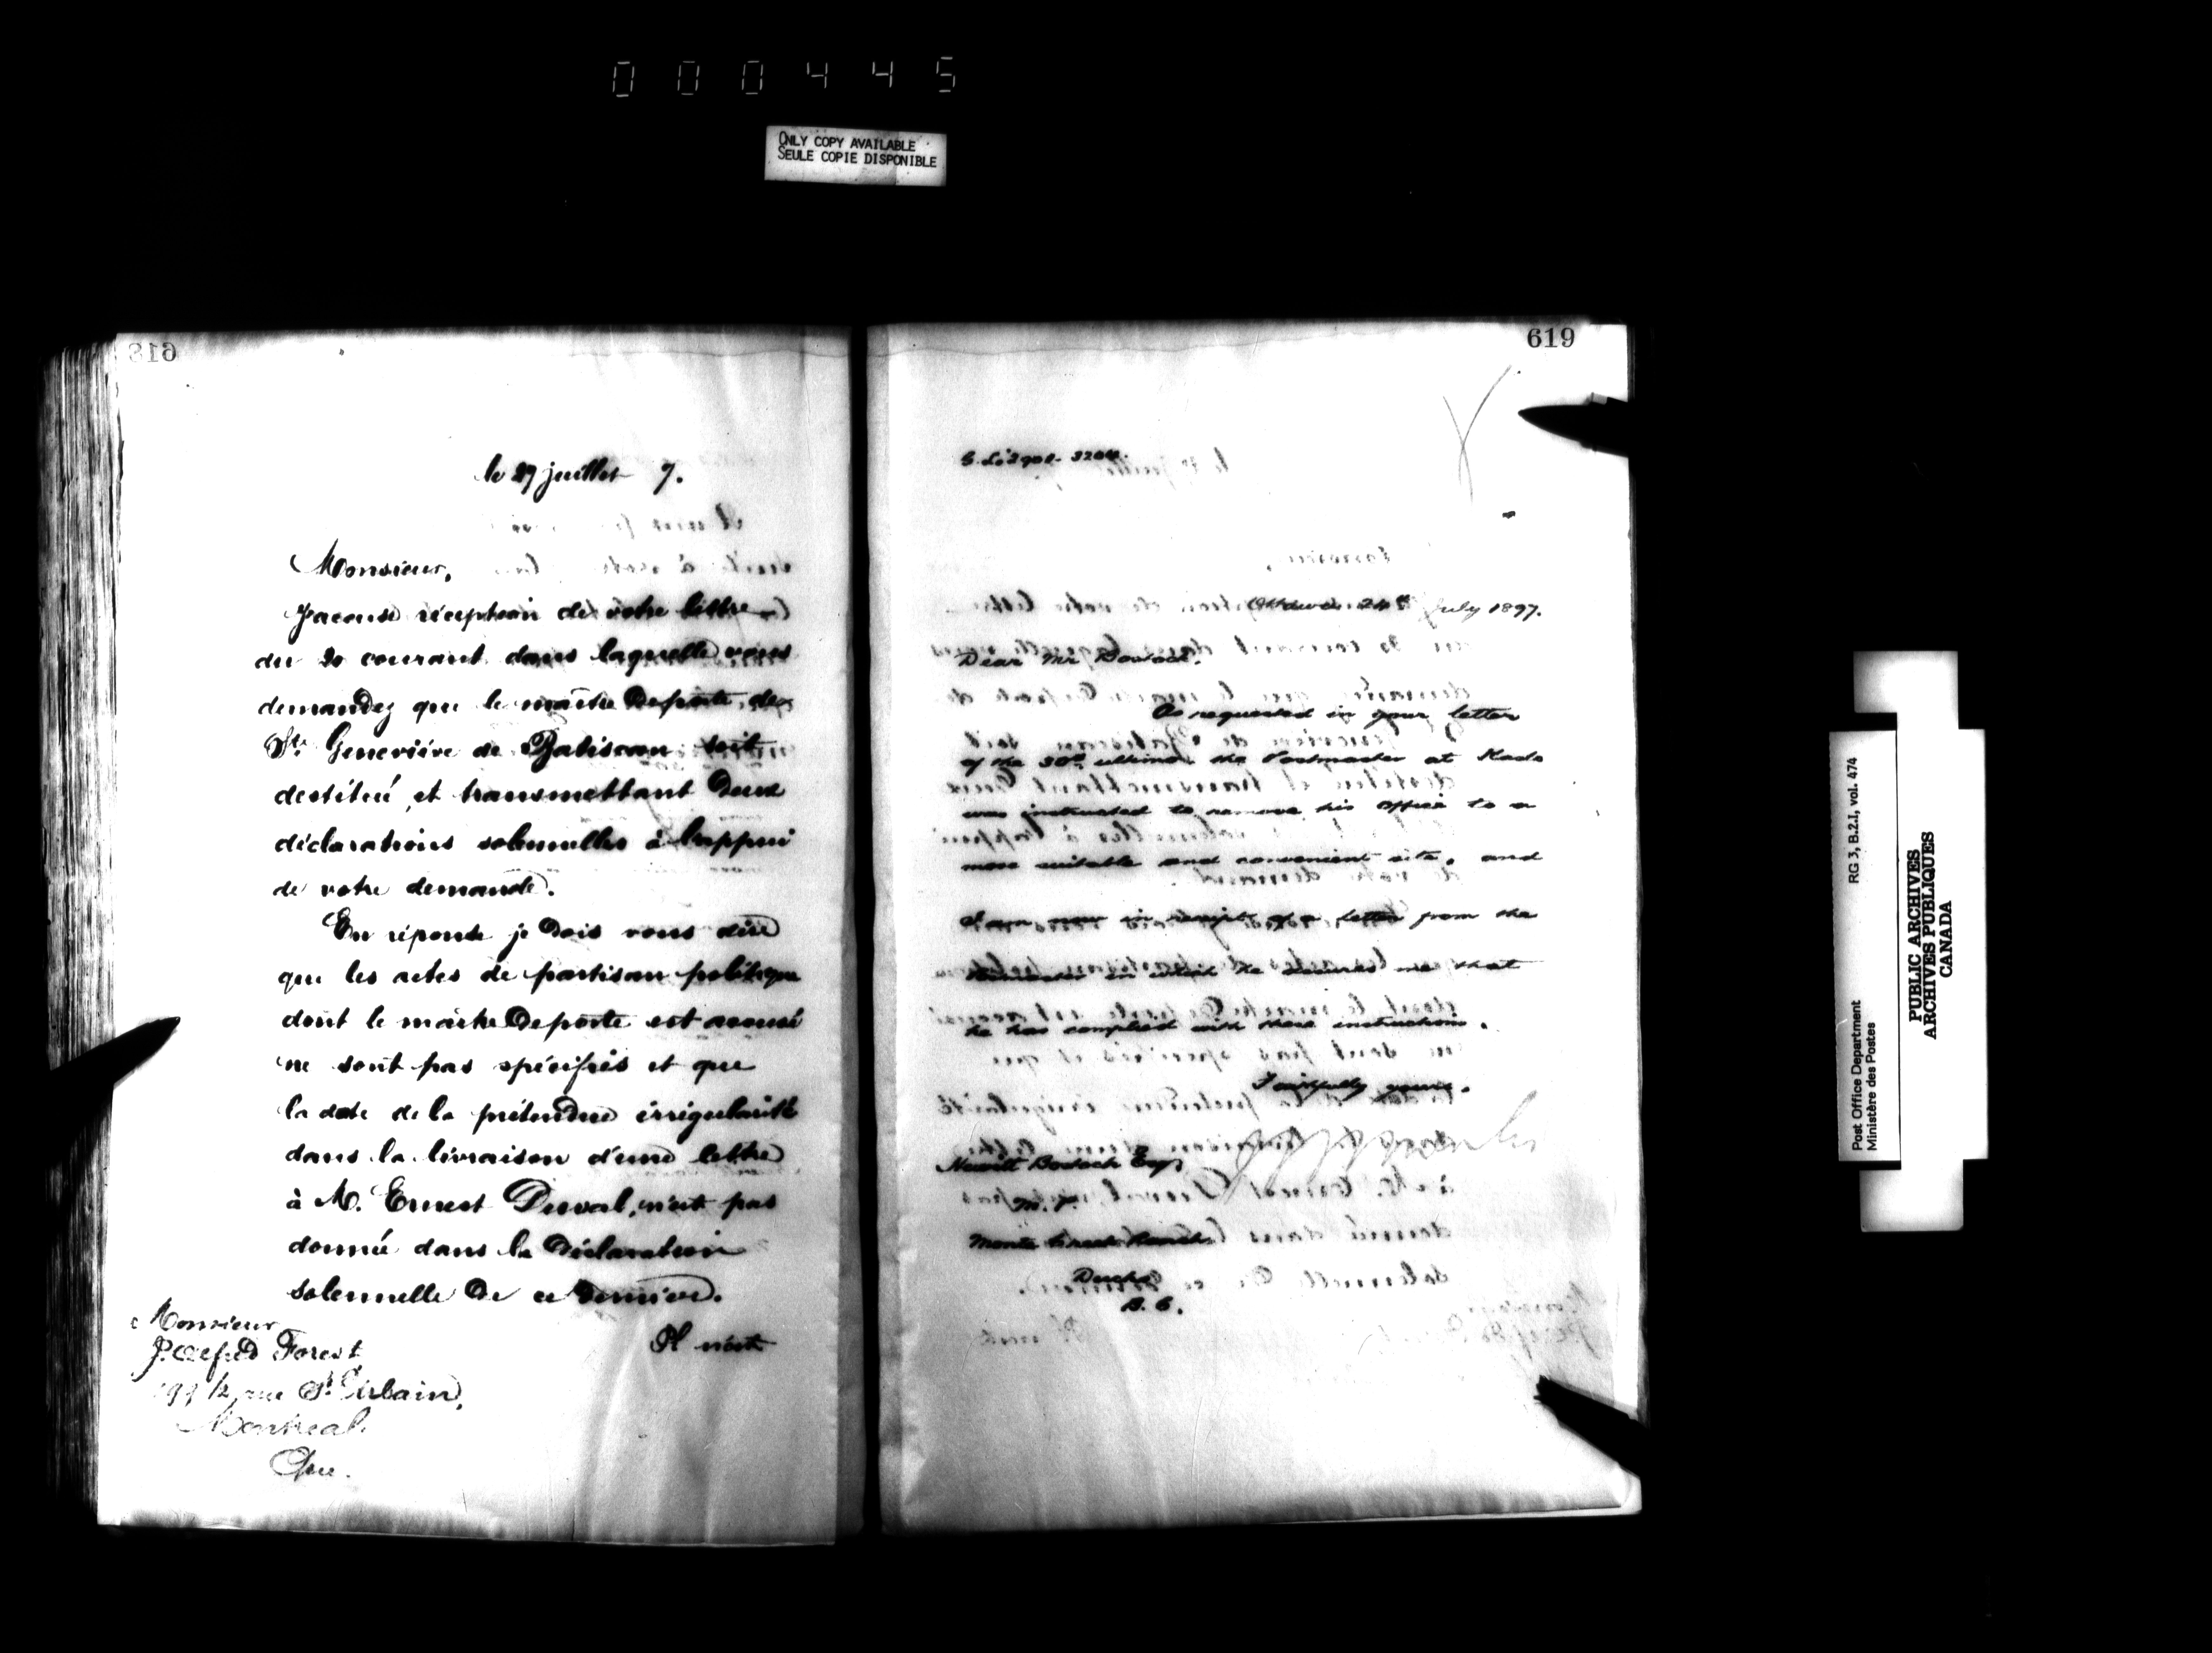 000445
ONLY COPY AVAILABLE
SEULE COPIE DISPONIBLE
618
le 27 juillet 7.
Monsieur,
J'accuse réception de votre lettre
du 20 courant dans laquelle vous
demandez que le maître de poste de
Ste Geneviève de Batiscan soit
destitué, et transmettant deux
déclarations solennelles à l'appui
de votre demande.
En réponse je dois vous dire
que les actes de partisan politique
dont le maître de poste est accusé
ne sont pas spécifiés et que
la date de la prétendue irrégularité
dans la livraison d'une lettre
à M. Ernest Duval, n'est pas
donnée dans la déclaration
solennelle de ce dernier.
Il n'est
Monsieur
J. Alfred Forest
rue St Urbain,
Montreal
Que.
619
Ottawa 24th July 1897.
Dear Mr Bostock.
As requested in your letter
of the 30th ultimo, the Postmaster at Kaslo
was instructed to remove his office to a
more suitable and convenient site, and
I am now in receipt of a letter from the
Postmaster in which he assures me that
he has complied with these instructions.
Faithfully yours.
Hewitt Bostock Esq
M. P.
Monte Creek Ranch
Ducks
B. C.
Post Office Department
Ministère des Postes
RG 3, B.2.I, vol. 474
PUBLIC ARCHIVES
ARCHIVES PUBLIQUES
CANADA